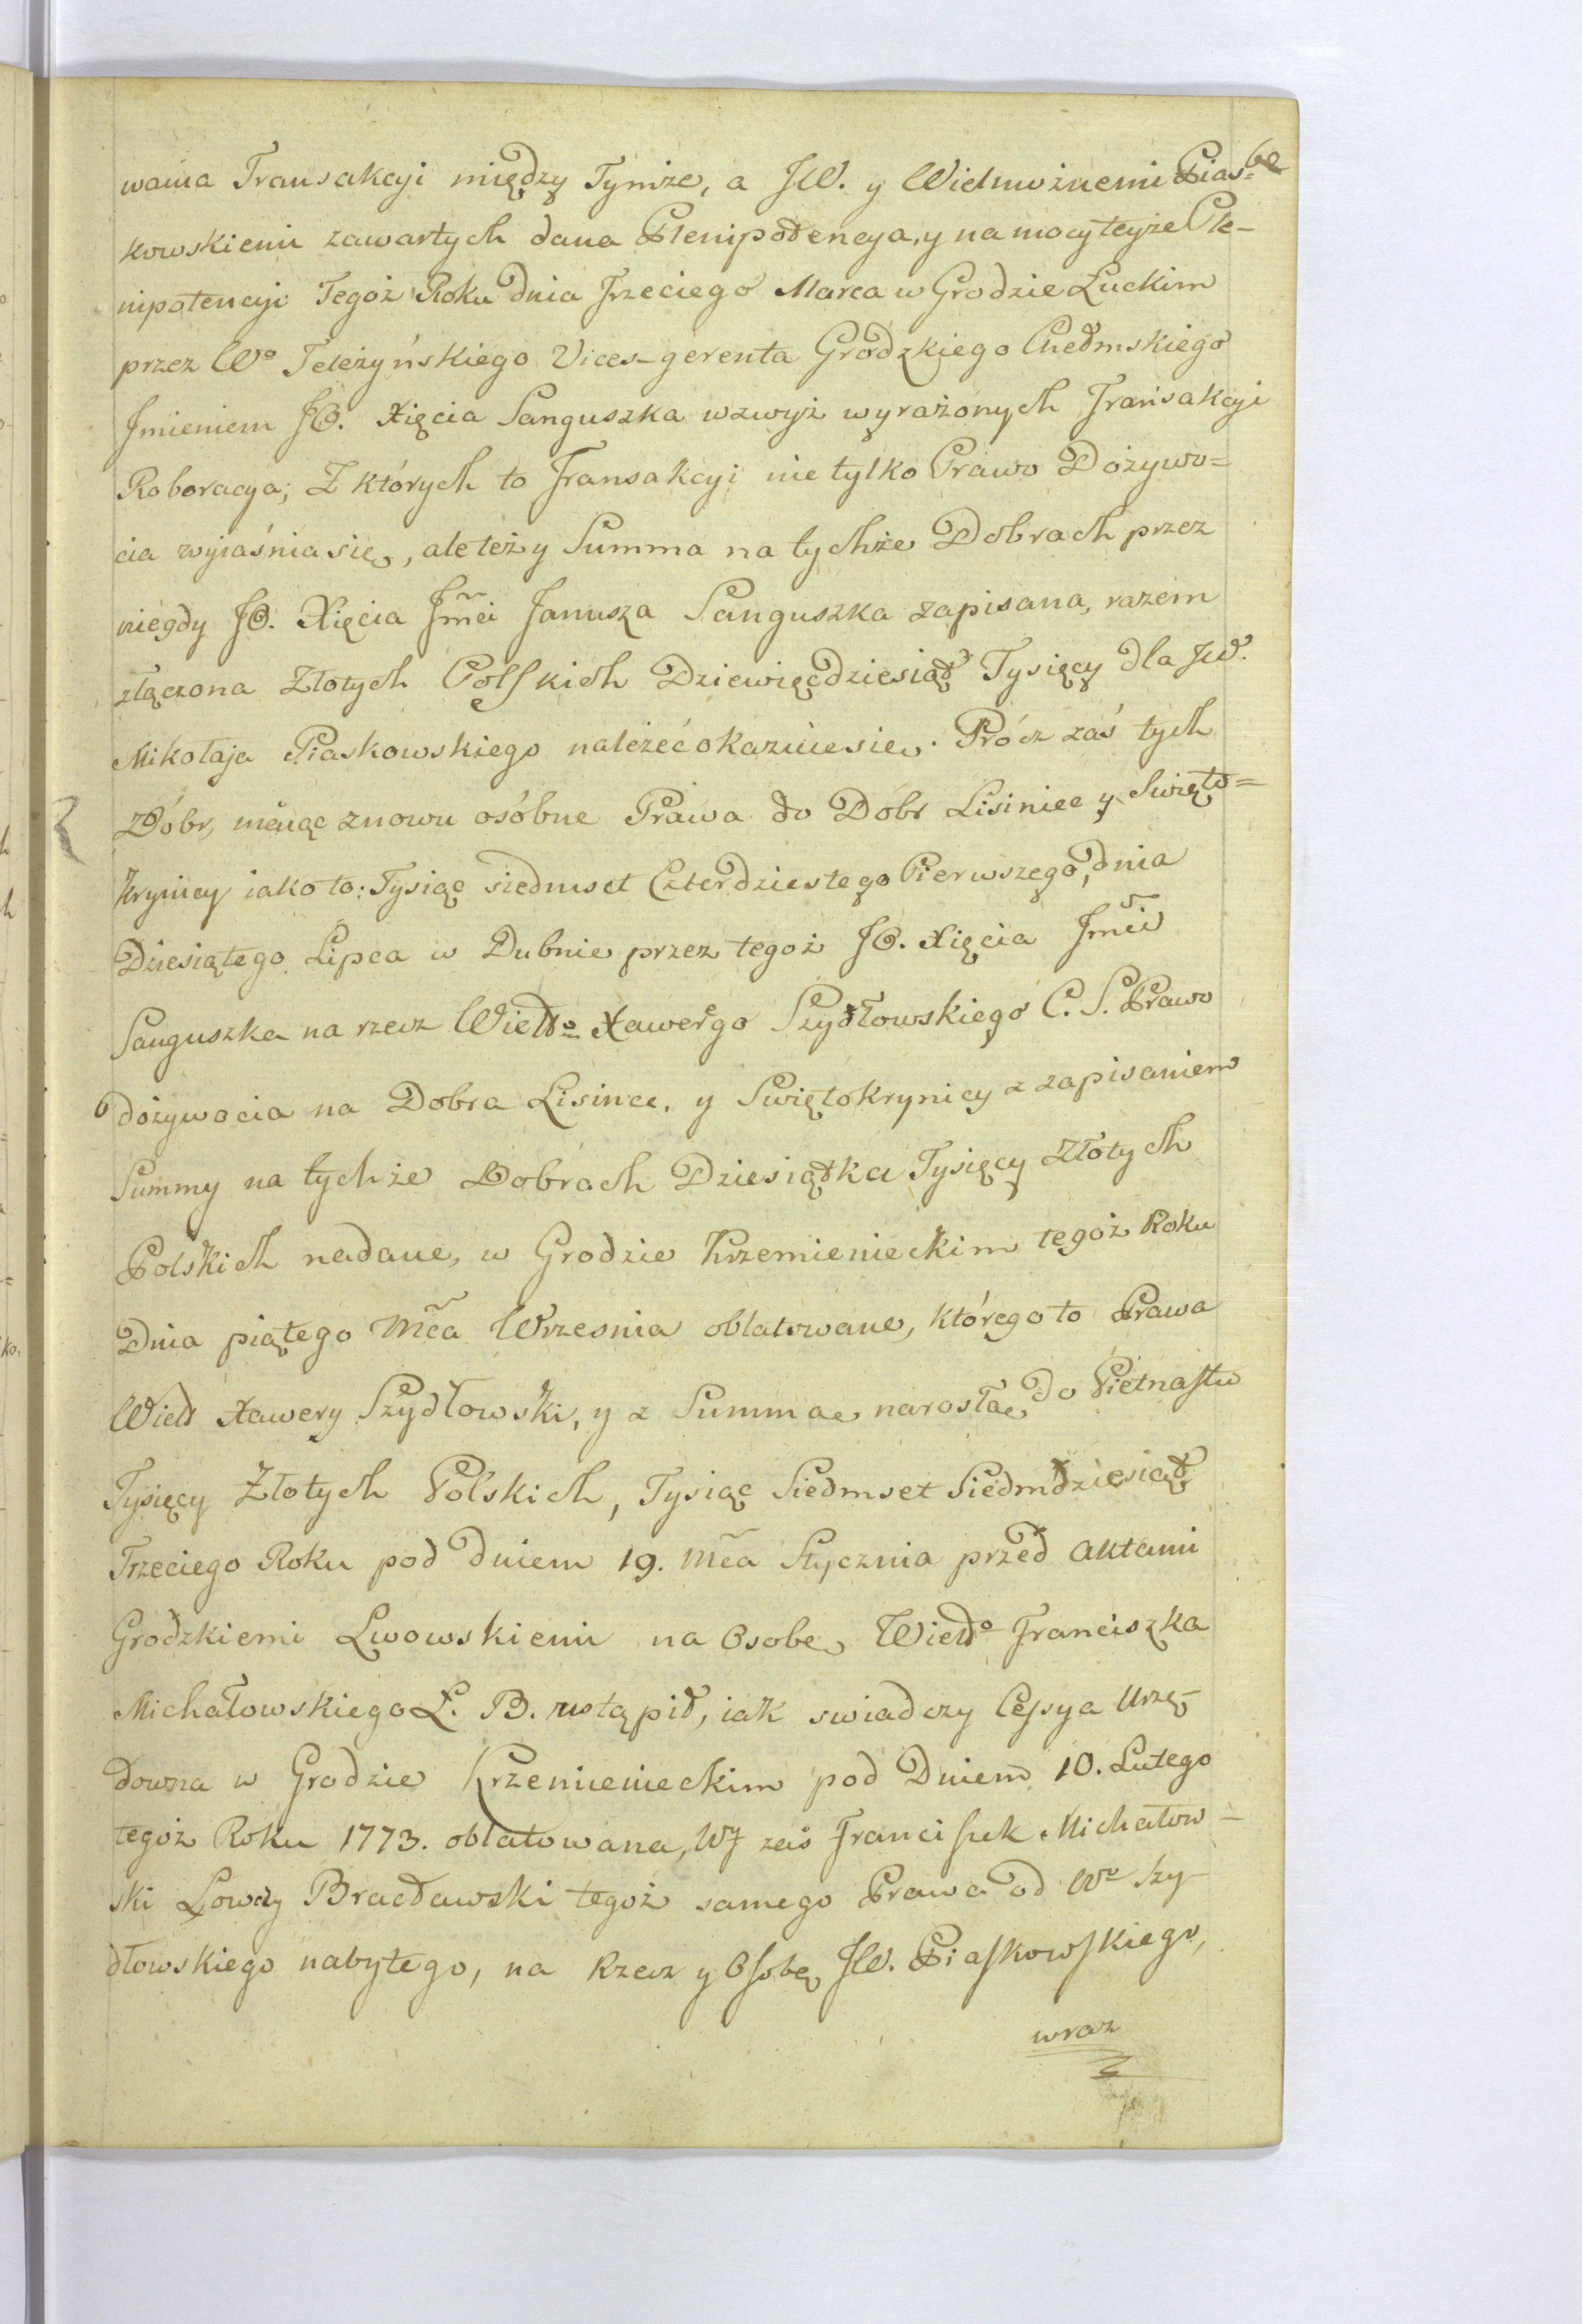 wania Transakcyi między Tymże, a JW. y Wielmożnemi Pias=
kowskiemi zawartych dana Plenipotencya, y na mocy teyże Ple-
nipotencyi Tegoż Roku dnia Trzeciego Marca w Grodzie Łuckim
przez Wo Teleżyńskiego Vices-gerenta Grodzkiego Chełmskiego
Jmieniem JO. Xięcia Sanguszka wzwyż wyrażonych Transakcyi
Roboracya; Z których to Transakcyi nie tylko Prawo Dożywo=
cia wyiaśnia się, ale też y Summa na tychże Dobrach przez
niegdy JO. Xięcia Jmci Janusza Sanguszka zapisana, razem
złączona Złotych Polskich Dziewięćdziesiąt Tysięcy dla JW.
Mikołaja Piaskowskiego należeć okazuie się. Prócz zaś tych
Dóbr, maiąc znowu osóbne Prawa do Dóbr Lisiniec y Swięto=
krynicy iako to: Tysiąc siedmset Czterdziestego Pierwszego, dnia
Dziesiątego Lipca w Dubnie przez tegoż JO. Xięcia Jmci
Sanguszka na rzecz Wielo Xawerego Szydłowskiego C. S. Prawo
dożywocia na Dobra Lisince, y Swiętokrynicy z zapisaniem
Summy na tychże Dobrach Dziesiątka Tysięcy Złotych
Polskich nadane, w Grodzie Krzemienieckim tegoż Roku
Dnia piątego Mca Wrzesnia oblatowane, którego to Prawa
Wiel Xawery Szydłowski, y z Summą narosłą do Piętnastu
Tysięcy Złotych Polskich, Tysiąc Siedmset Siedmdziesiąt
Trzeciego Roku pod dniem 19. Mca Stycznia przed Aktami
Grodzkiemi Lwowskiemi na Osobę Wielo Franciszka
Michałowskiego Ł. B. ustąpił, iak swiadczy Cessya Urzę-
downa w Grodzie Krzemienieckim pod Dniem 10. Lutego
tegoż Roku 1773. oblatowana, WJ zaś Franciszek Michałow-
ski Łowczy Bracławski tegoż samego Prawa od Wo Szy-
dłowskiego nabytego, na Rzecz y Osobę JW. Piaskowskiego,
wraz